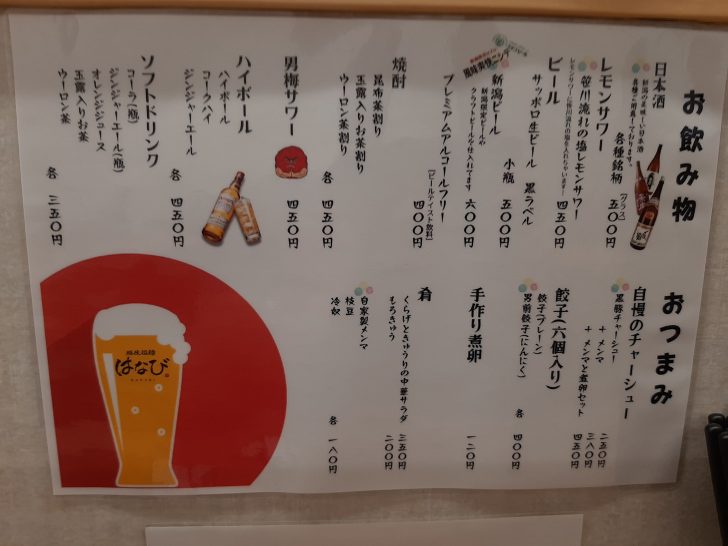 お飲み物
日本酒
新潟の美味しい日本酒
各種ご用意しております。
各種銘柄
(グラス)
五〇〇円
レモンサワー
笹川流れの塩レモンサワー
レモンサワーに笹川流れの塩を入れちゃいます!
四五〇円
ビール
サッポロ生ビール 黒ラベル
小瓶 五〇〇円
新潟ビール
新潟限定ビールや
クラフトビールを仕入れてます
六〇〇円
プレミアムアルコールフリー
(ビールテイスト飲料)
四〇〇円
風味爽快ニシテ
焼酎
昆布茶割り
玉露入りお茶割り
ウーロン茶割り
各 四五〇円
男梅サワー
四五〇円
ハイボール
ハイボール
コークハイ
ジンジャーエール
各 四五〇円
ソフトドリンク
コーラ(瓶)
ジンジャーエール(瓶)
オレンジジュース
玉露入りお茶
ウーロン茶
各 三五〇円
おつまみ
自慢のチャーシュー
黒豚チャーシュー 二五〇円
+ メンマ 三八〇円
+ メンマと煮卵セット 四五〇円
餃子(六個入り)
餃子(プレーン)
男前餃子(にんにく)
各 四〇〇円
手作り煮卵
一二〇円
肴
くらげときゅうりの中華サラダ 三五〇円
もろきゅう 二〇〇円
自家製メンマ
枝豆
冷奴
各 一八〇円
はなび
HANABI